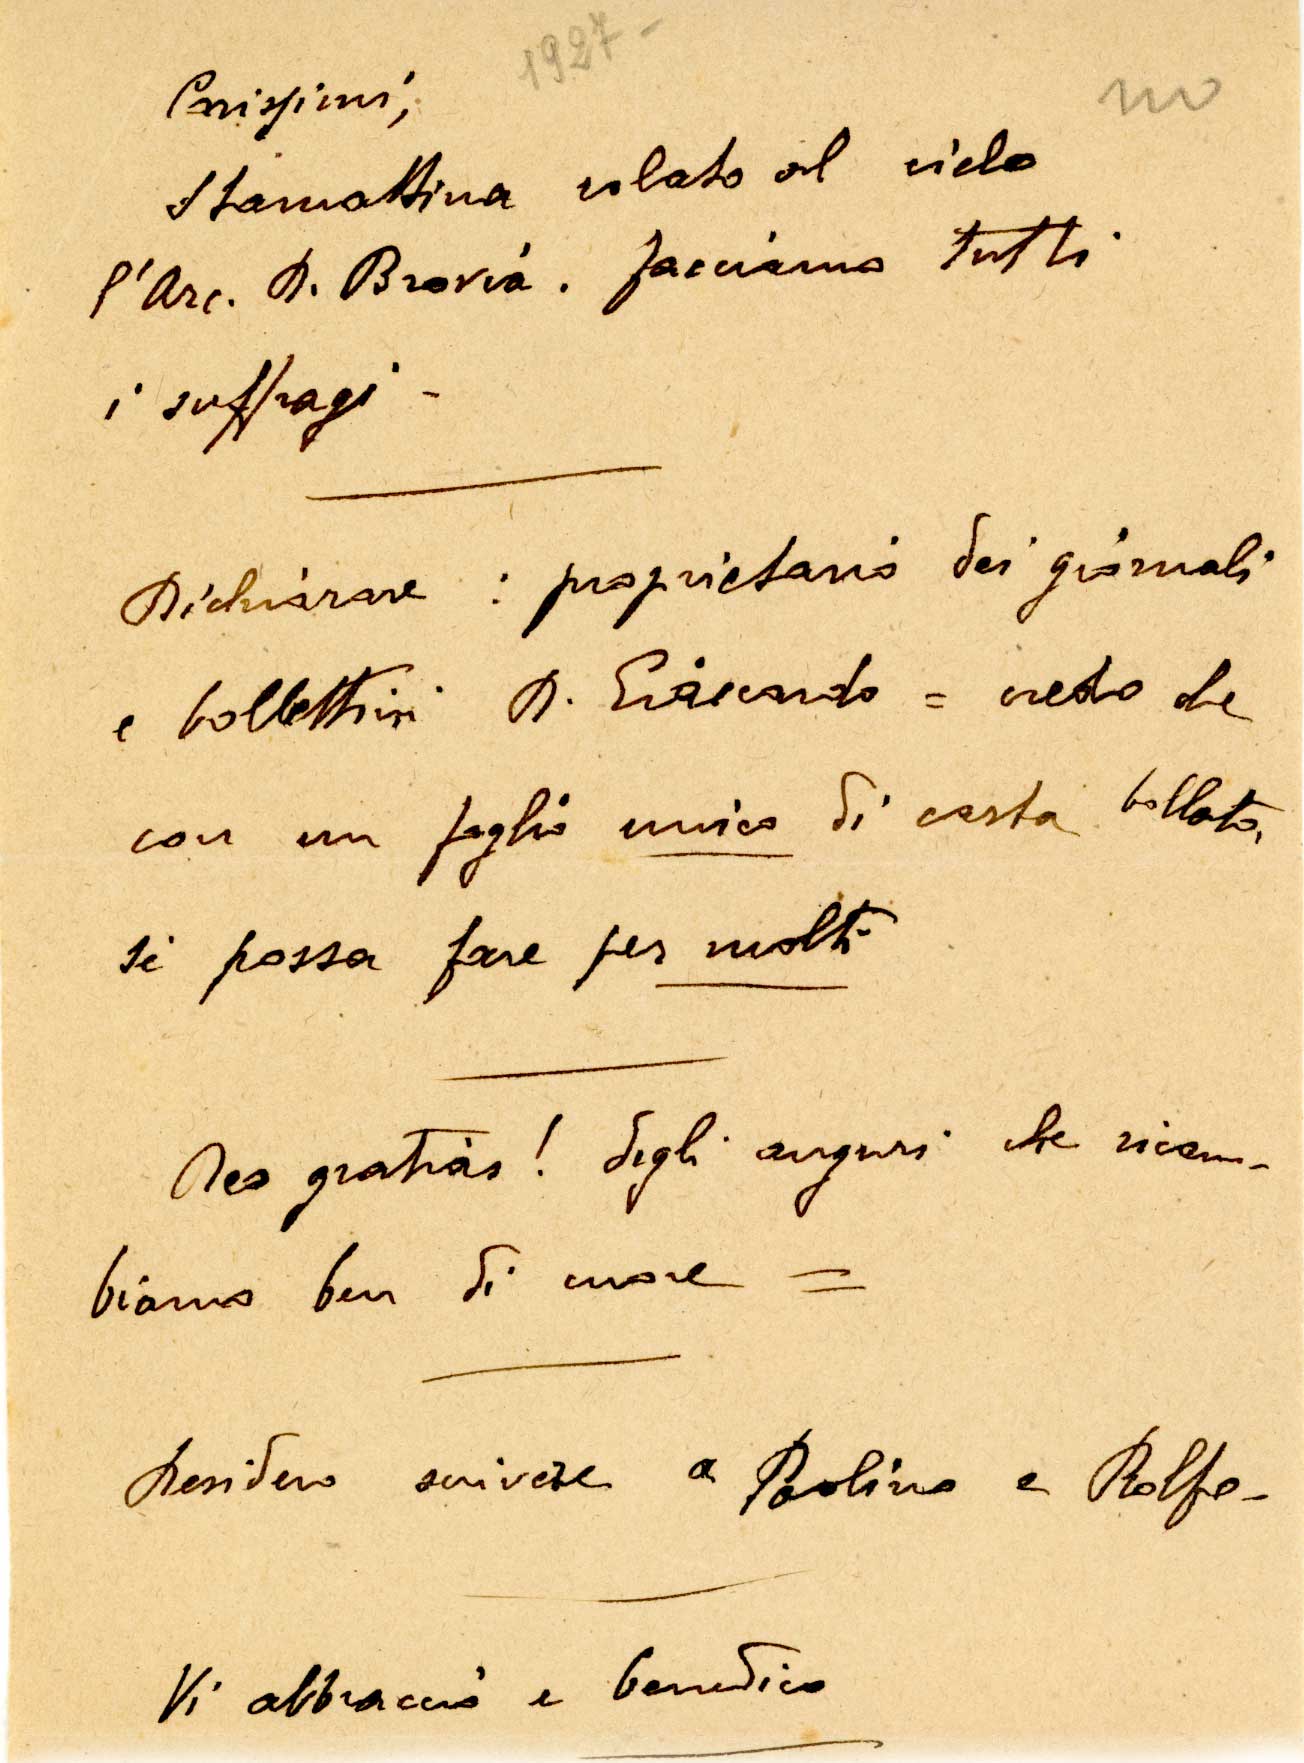 1927-
no
Carissimi,
Stamattina volato al cielo
l'Arc. D. Brovia. facciamo tutti
i suffragi -
Dichiarare : proprietario dei giornali
e bollettini D. Giaccardo = credo che
con un foglio unico di carta bollata,
si possa fare per molti
Deo gratias! degli auguri che ricam-
biamo ben di cuore =
Desidero scrivere a Paolino e Rolfo-
Vi abbraccio e benedico